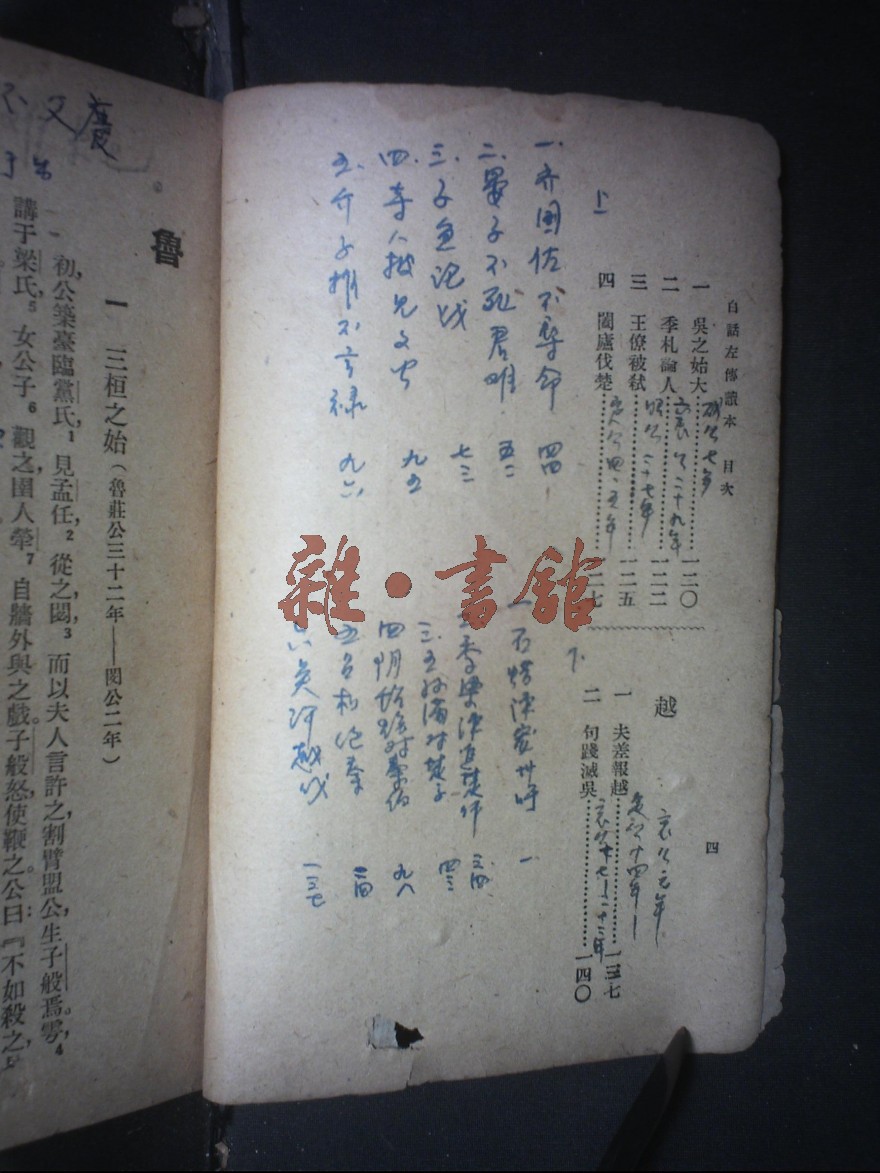 白話左傳讀本 目次
四
一 吳之始大………一二〇
成公七年
二 季札論人………一二二
襄公二十九年
三 王僚被弒………一二五
昭公二十七年
四 闔廬伐楚………一二七
定公四、五年
越
哀公元年
一 夫差報越………一三七
定公十四年—
二 句踐滅吳………一四〇
哀公十七—二十二年
上
一. 齐國佐不辱命 四四
二. 晏子不死君难 五二
三. 子鱼论战 七三
四. 寺人披見文公 九五
五. 介子推不言禄 九六
下
一 石碏諫寵州吁 一
二 季梁諫追楚师 三四
三. 王孙满对楚子 四三
四 阴饴甥对秦伯 九八
五 吕相绝秦
一三七
雜·書館
魯
一 三桓之始(魯莊公三十二年——閔公二年)
初,公築臺臨黨氏,1 見孟任,2 從之。閟,3 而以夫人言許之,割臂盟公,生子般焉。雩,4
講于梁氏,5 女公子6 觀之。圉人犖,7 自牆外與之戲。子般怒,使鞭之。公曰:『不如殺之,是